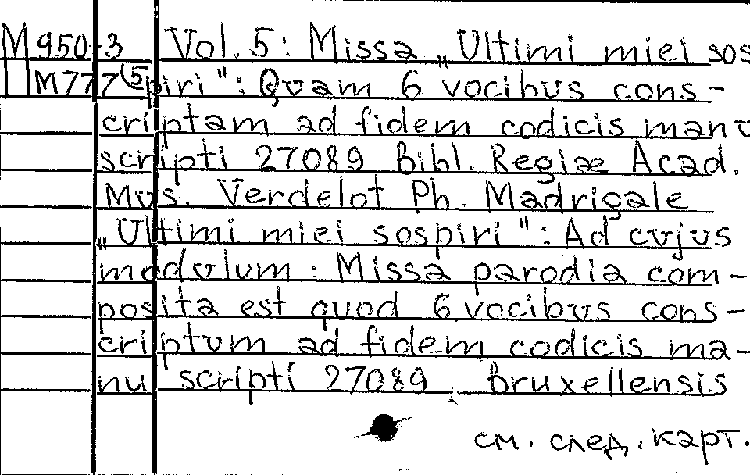 M 950-3 Vol. 5: Missa „Ultimi miei sos
M777(5) piri": Quam 6 vocibus cons-
criptam ad fidem codicis manu
scripti 27089 Bibl. Regiæ Acad.
Mus. Verdelot Ph. Madrigale
„Ultimi miei sospiri": Ad cujus
modulum: Missa parodia com-
posita est quod 6 vocibus cons-
criptum ad fidem codicis ma-
nu scripti 27089 Bruxellensis
см. след. карт.